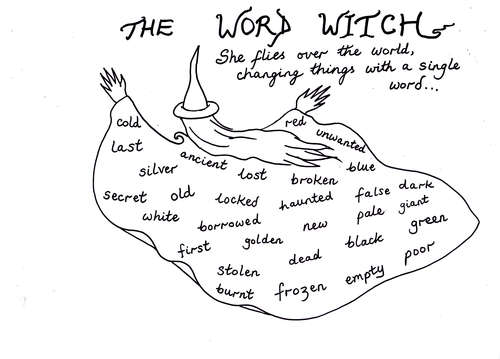 THE WORD WITCH
She flies over the world,
changing things with a single
word...
cold
red
unwanted
last
ancient
silver
lost
broken
blue
secret
old
locked
haunted
false
dark
white
borrowed
new
pale
giant
first
golden
black
green
stolen
dead
empty
poor
burnt
frozen